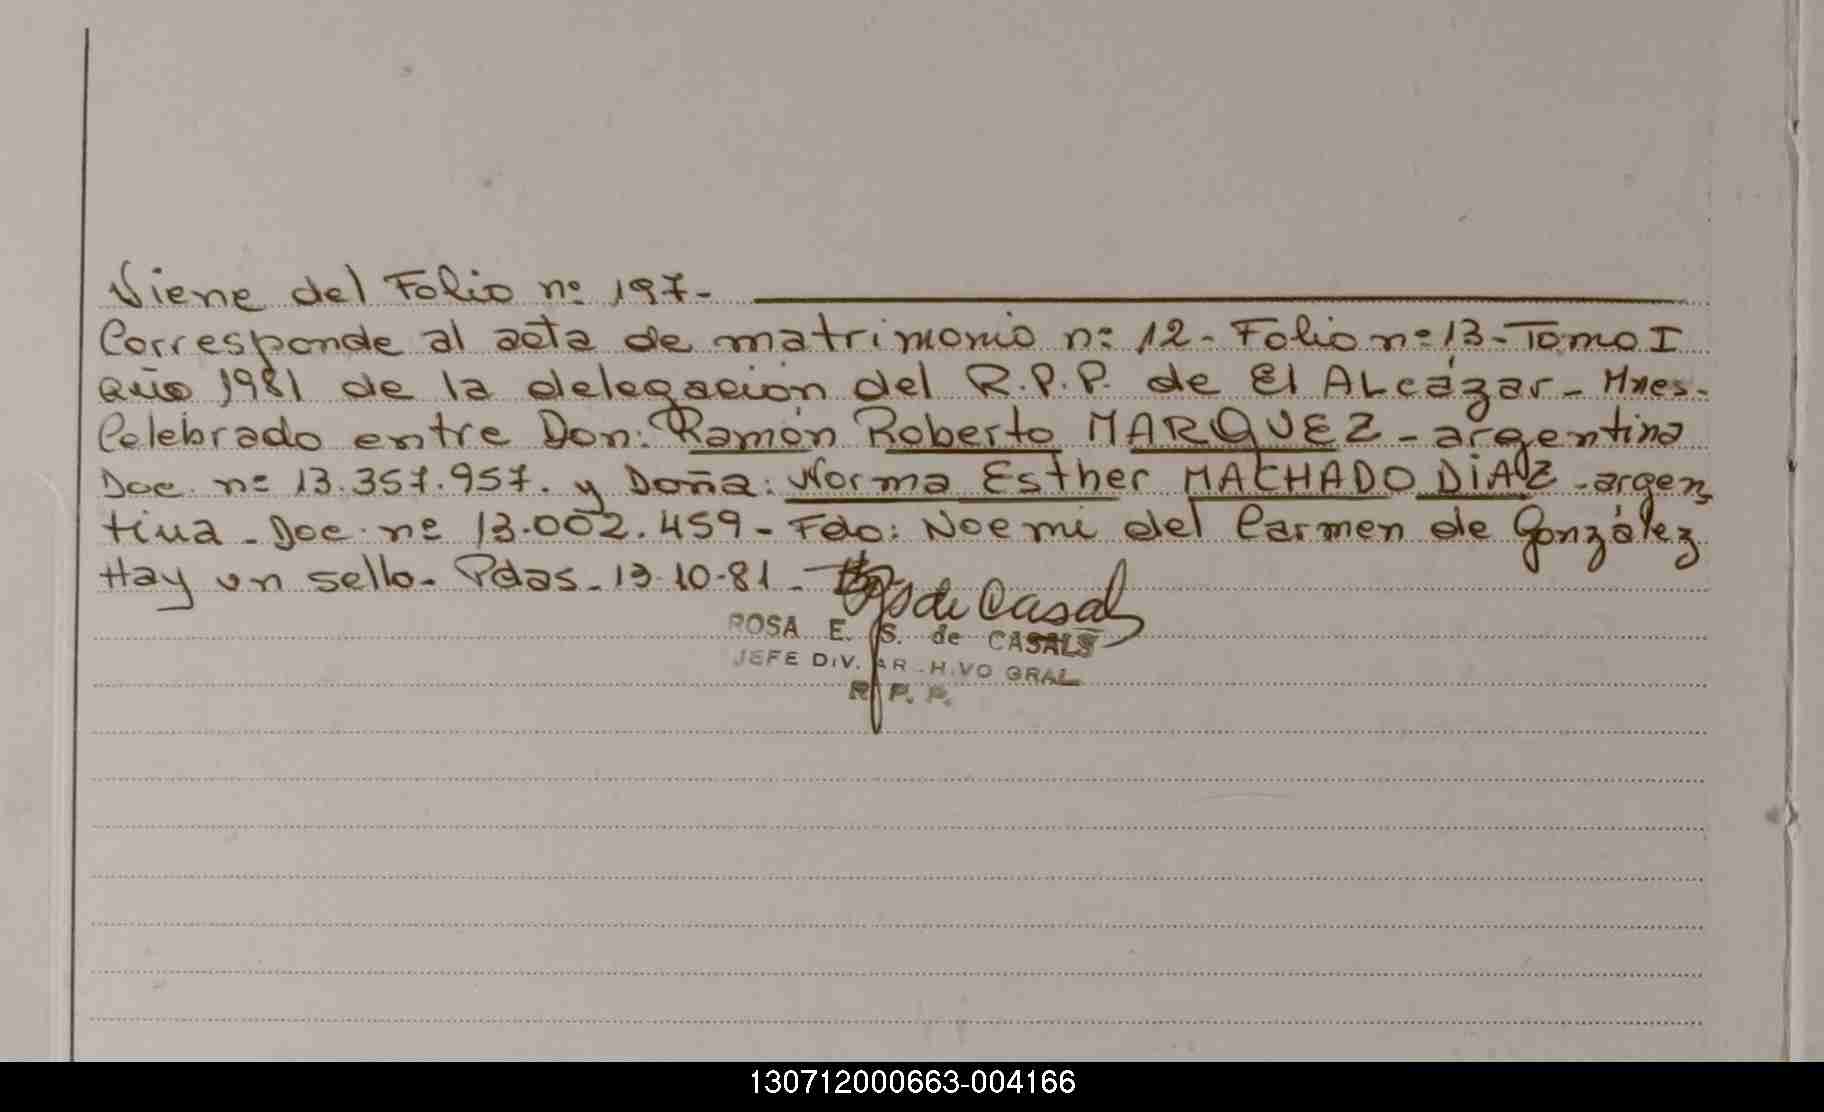 Viene del Folio nº 197-
Corresponde al acta de matrimonio nº 12- Folio nº 13- Tomo I
año 1981 de la delegación del R.P.P. de El ALcázar- Mnes-
Celebrado entre Don: Ramón Roberto MARQUEZ - argentino
Doc. nº 13.357.957. y Doña: Norma Esther MACHADO DíAZ -argen
tina - Doc. nº 13.002.459 - Fdo: Noemi del Carmen de González
Hay un sello- Pdas- 13-10-81- de Casals
ROSA E. S. de CASALS
JEFE DIV. ARCHIVO GRAL
R. P. P.
130712000663-004166